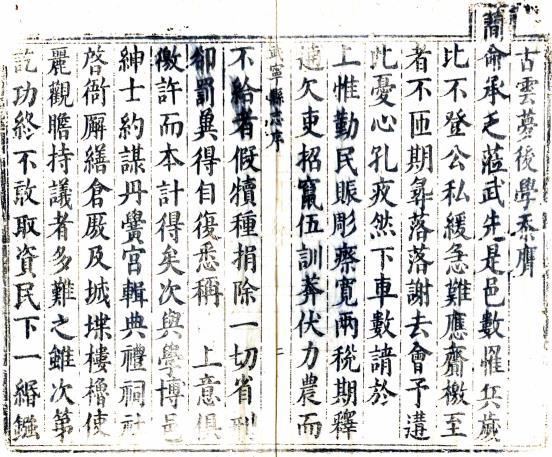 古雲夢後學忝膺
簡命承乏蒞武先是邑數罹兵歲
比不登公私緩急難應齋檄至
者不匝期彝落落謝去會予遘
此憂心孔疚然下車數請於
上惟勤民賑彫瘵寬兩稅期釋
逋欠吏招竄伍訓莽伏力農而
武寧縣志序
不給者假犢種捐除一切省刑
卻罰兾得自復悉稱　上意俱
徼許而本計得矣次與學博邑
紳士約謀丹黌宮輯典禮祠社
啓衙廨繕倉厫及城堞樓櫓使
麗觀瞻持議者多難之雖次第
訖功終不敢取資民下一緡鏹